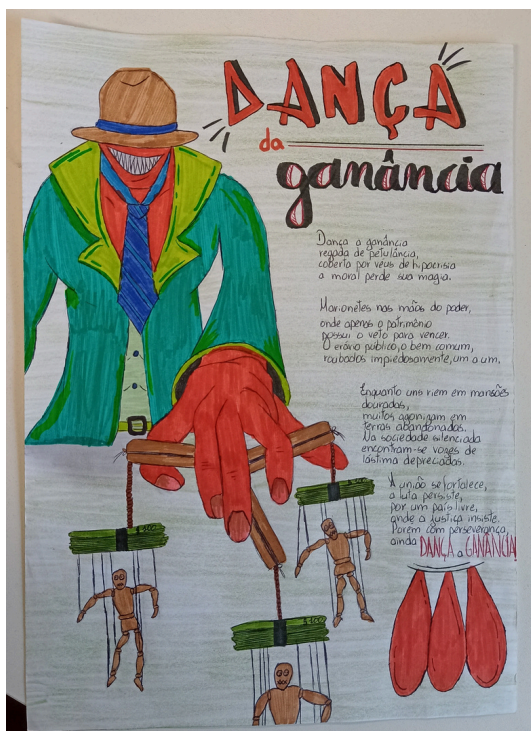 DANÇA
da
ganância
Dança a ganância
regada de petulância,
coberta por véus de hipocrisia
a moral perde sua magia.
Marionetes nas mãos do poder,
onde apenas o patrimônio
possui o veto para vencer.
O erário público, o bem comum,
roubados impiedosamente, um a um.
Enquanto uns riem em mansões
douradas,
muitos agonizam em
terras abandonadas.
Na sociedade silenciada
encontram-se vozes de
lástima depreciadas.
A união se fortalece,
a luta persiste,
por um país livre,
onde a justiça insiste.
Porém com perseverança,
ainda DANÇA a GANÂNCIA!